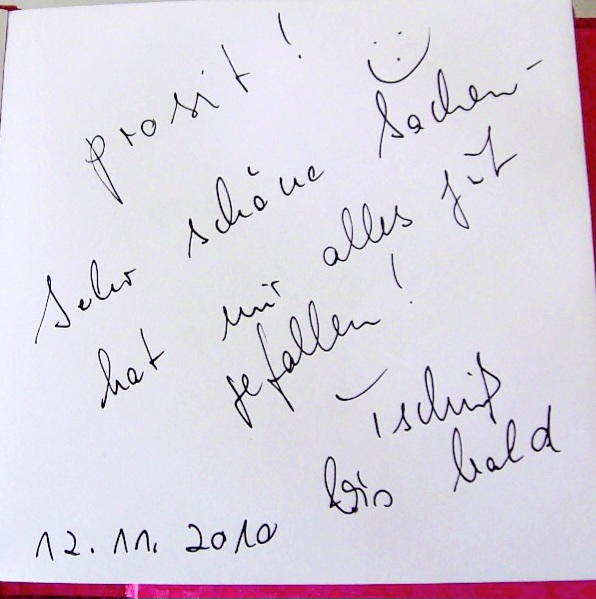 prosit!
Sehr schöne Sachen -
hat mir alles gut
gefallen!
Tschüß
Bis bald
12.11.2010